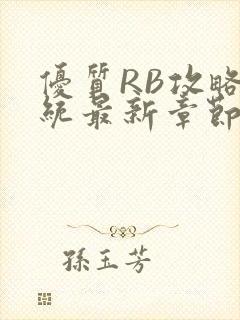 優質RB攻略
統最新章節
孫玉芳